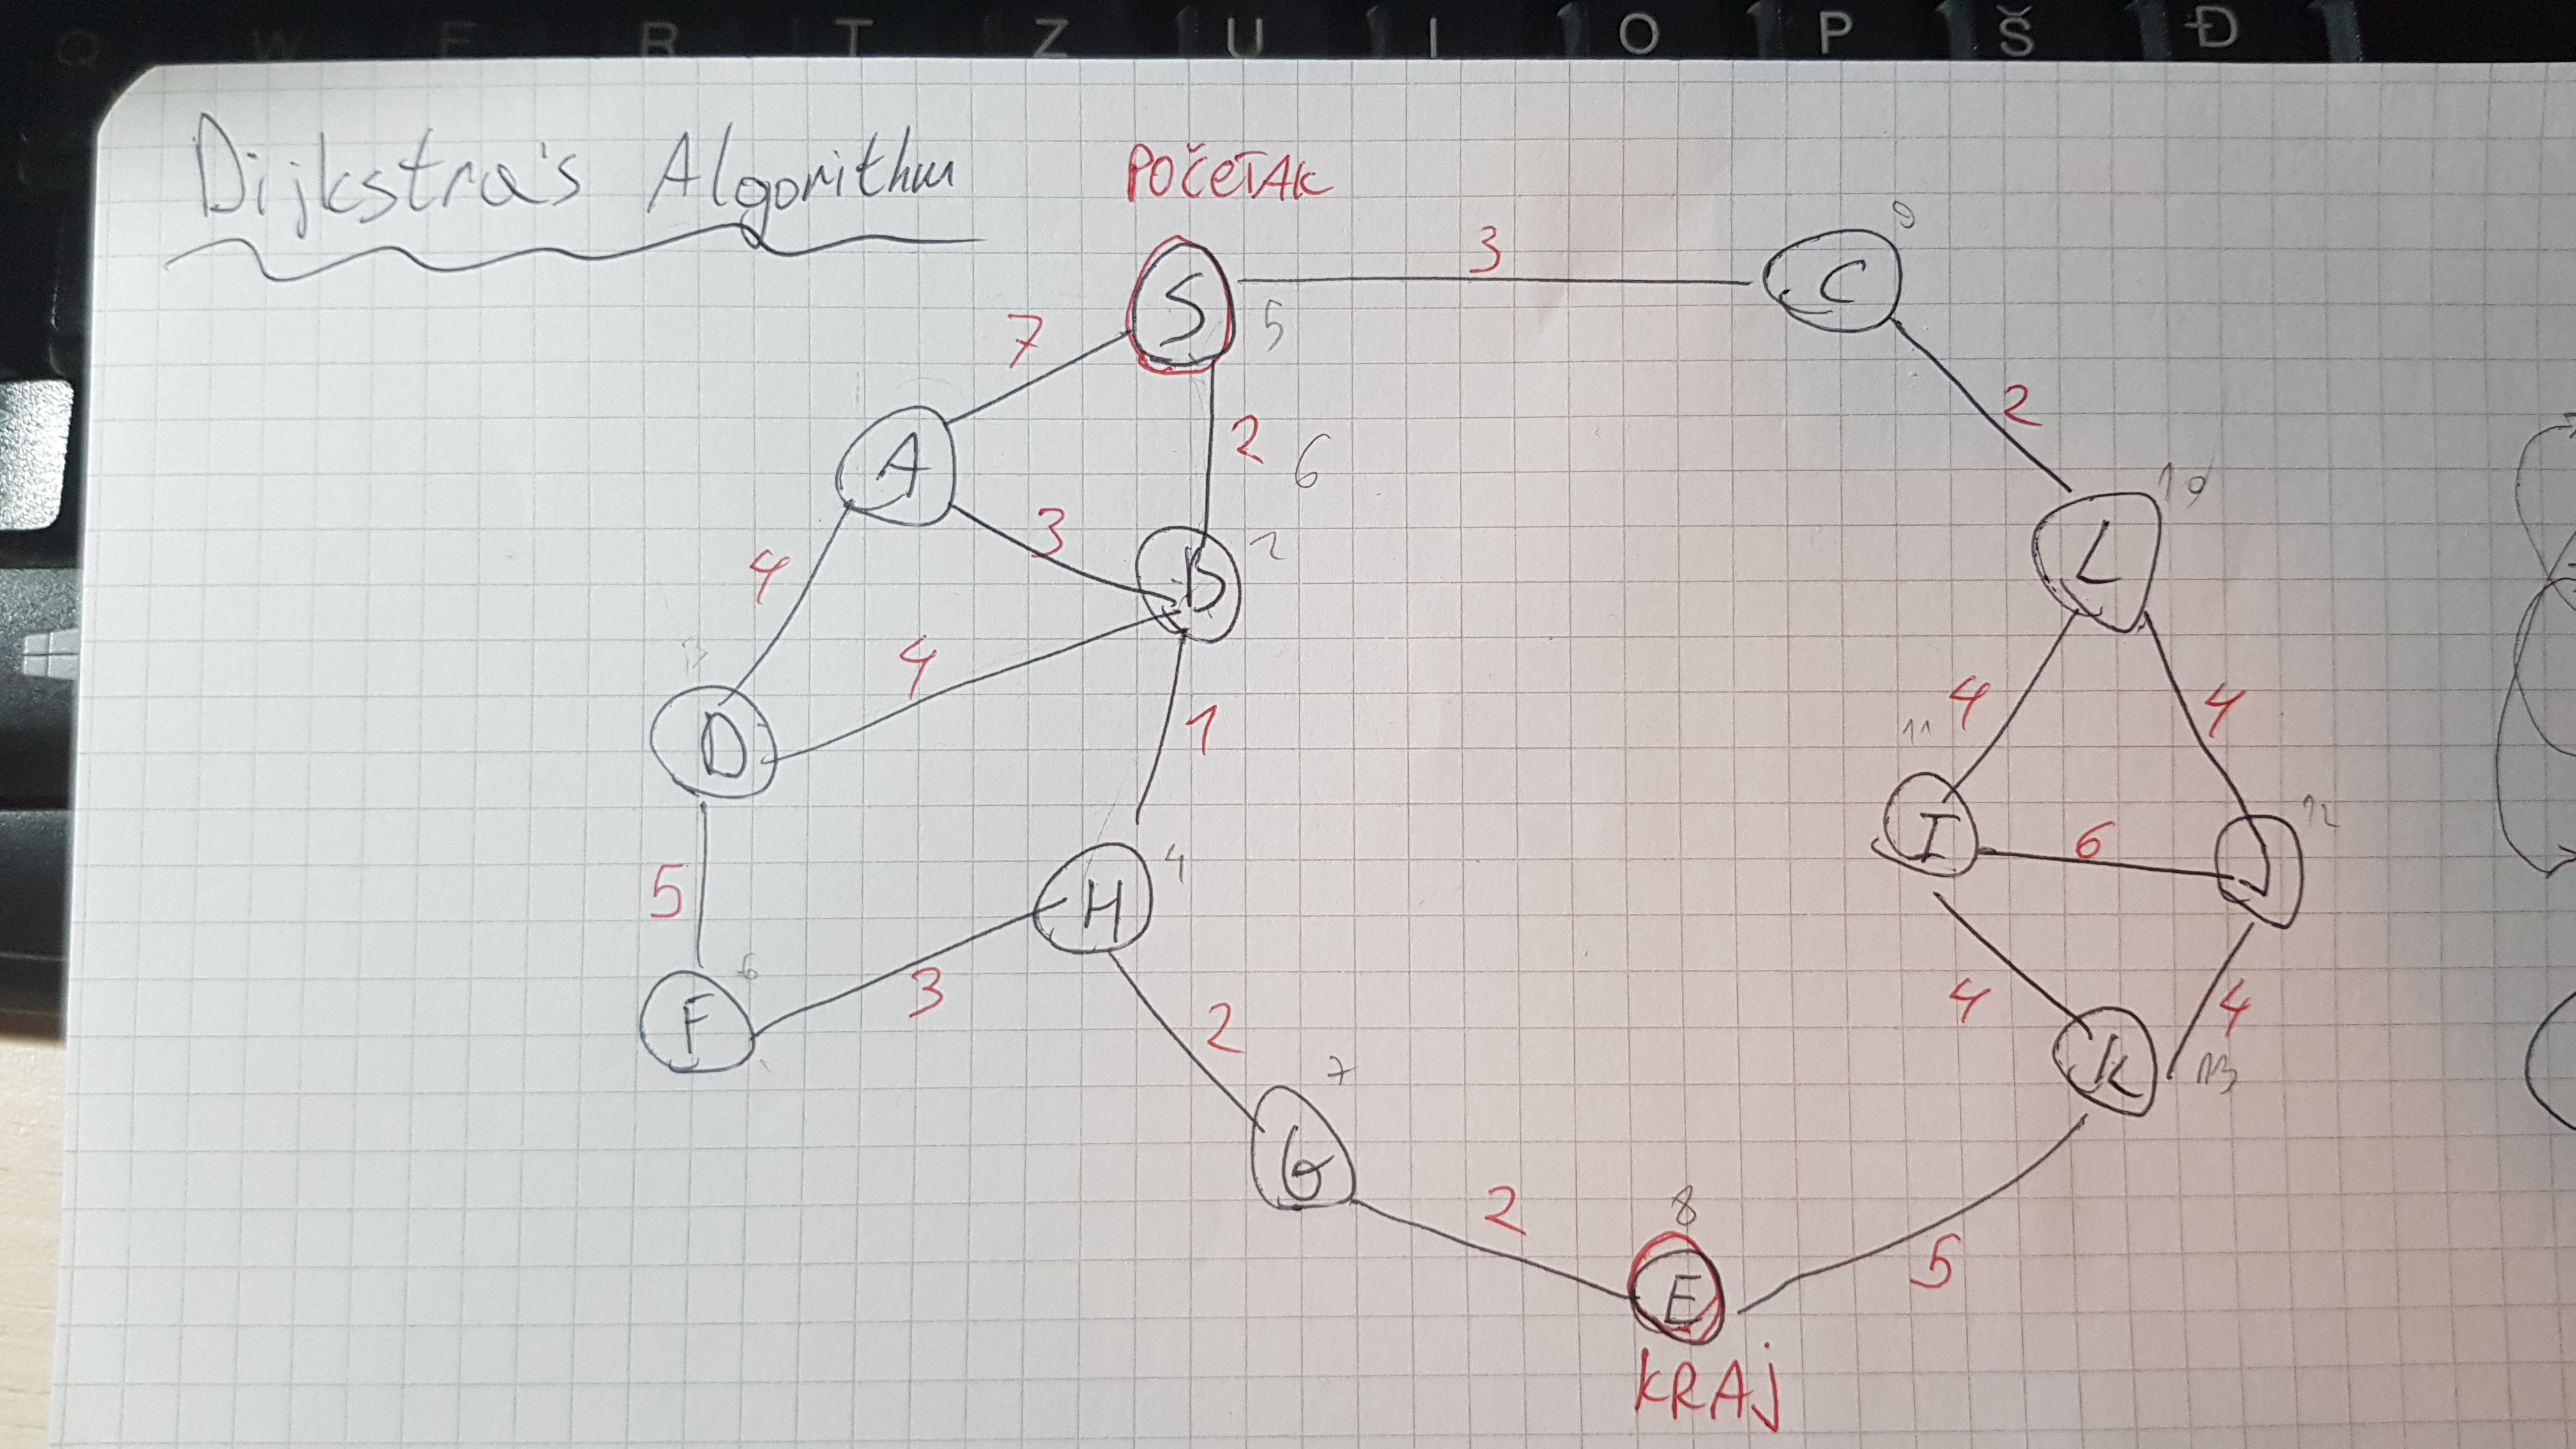 Q W E R T Z U I O P Š Đ
Dijkstra's Algorithm
POČETAK
S
5
3
C
9
7
2
6
2
A
3
B
2
10
L
4
4
D
1
4
4
11
I
6
J
12
5
H
4
F
6
3
2
4
4
K
13
G
7
2
8
E
5
KRAJ